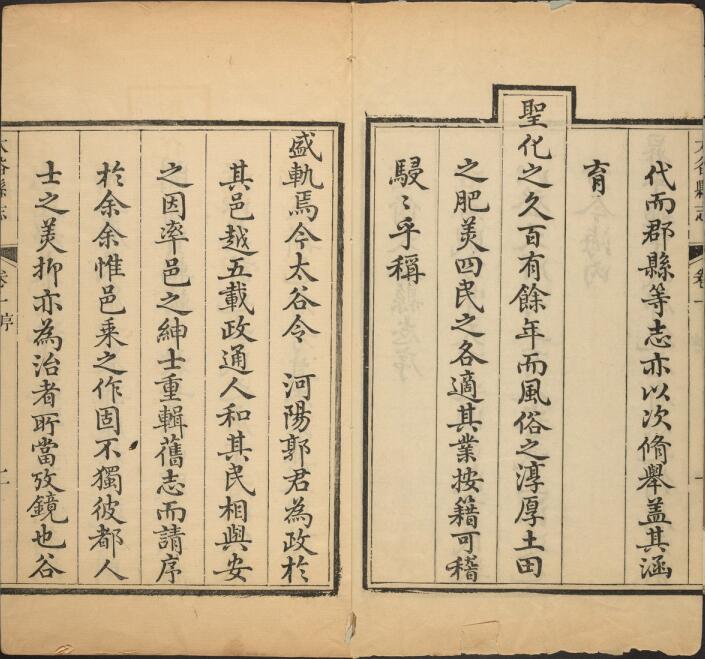 太谷縣志
卷一
一
代而郡縣等志亦以次脩舉盖其涵
育
聖化之久百有餘年而風俗之淳厚土田
之肥美四民之各適其業按籍可稽
駸〻乎稱
盛軌焉今太谷令 河陽郭君為政於
其邑越五載政通人和其民相與安
之因率邑之紳士重輯舊志而請序
於余余惟邑乘之作固不獨彼都人
士之美抑亦為治者所當攷鏡也谷
太谷縣志
卷一序
二